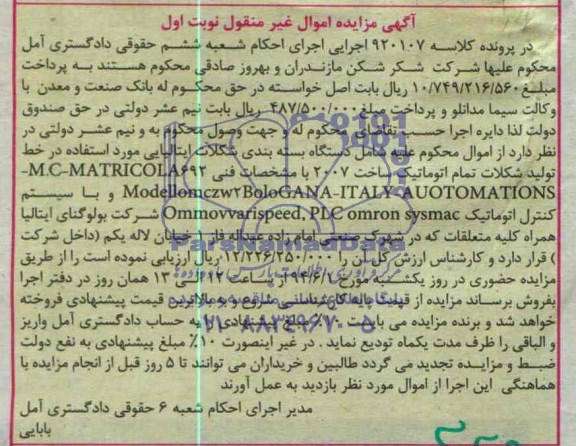 آگهی مزایده اموال غیر منقول نوبت اول
در پرونده کلاسه ۹۲۰۱۰۷ اجرایی اجرای احکام شعبه ششم حقوقی دادگستری آمل
محکوم علیها شرکت شکر شکن مازندران و بهروز صادقی محکوم هستند به پرداخت
مبلغ ۱۰/۷۴۹/۲۱۶/۵۶۰ ریال بابت اصل خواسته در حق محکوم له بانک صنعت و معدن با
وکالت سیما مدانلو و پرداخت مبلغ ۴۸۷/۵۰۰/۰۰۰ ریال بابت نیم عشر دولتی در حق صندوق
دولت لذا دایره اجرا حسب تقاضای محکوم له و جهت وصول محکوم به و نیم عشر دولتی در
نظر دارد از اموال محکوم علیه شامل دستگاه بسته بندی شکلات ایتالیایی مورد استفاده در خط
تولید شکلات تمام اتوماتیک ساخت ۲۰۰۷ با مشخصات فنی M.C-MATRICOLA۶۹۲-
Modellomczw۲BoloGANA-ITALY-AUOTOMATIONS و با سیستم
کنترل اتوماتیک Ommovvarispeed, PLC omron sysmac شرکت بولوگنای ایتالیا
همراه کلیه متعلقات که در شهرک صنعتی امام زاده عبداله فاز ۱ خیابان لاله یکم (داخل شرکت
) قرار دارد و کارشناس ارزش کل آن را ۱۲/۲۲۶/۲۵۰/۰۰۰ ریال ارزیابی نموده است را از طریق
مزایده حضوری در روز یکشنبه مورخ ۹۴/۶/ از ساعت ۱۲ الی ۱۳ همان روز در دفتر اجرا
بفروش برساند مزایده از قیمت پایه کارشناسی شروع و به بالاترین قیمت پیشنهادی فروخته
خواهد شد و برنده مزایده می بایست ۱۰٪ پیشنهادی به حساب دادگستری آمل واریز
و الباقی را ظرف مدت یکماه تودیع نماید . در غیر اینصورت ۱۰٪ مبلغ پیشنهادی به نفع دولت
ضبط و مزایده تجدید می گردد طالبین و خریداران می توانند تا ۵ روز قبل از انجام مزایده با
هماهنگی این اجرا از اموال مورد نظر بازدید به عمل آورند
مدیر اجرای احکام شعبه ۶ حقوقی دادگستری آمل
بابایی
ParsNamadData
۰۲۱-۸۸۳۴۹۶۷۰-۵